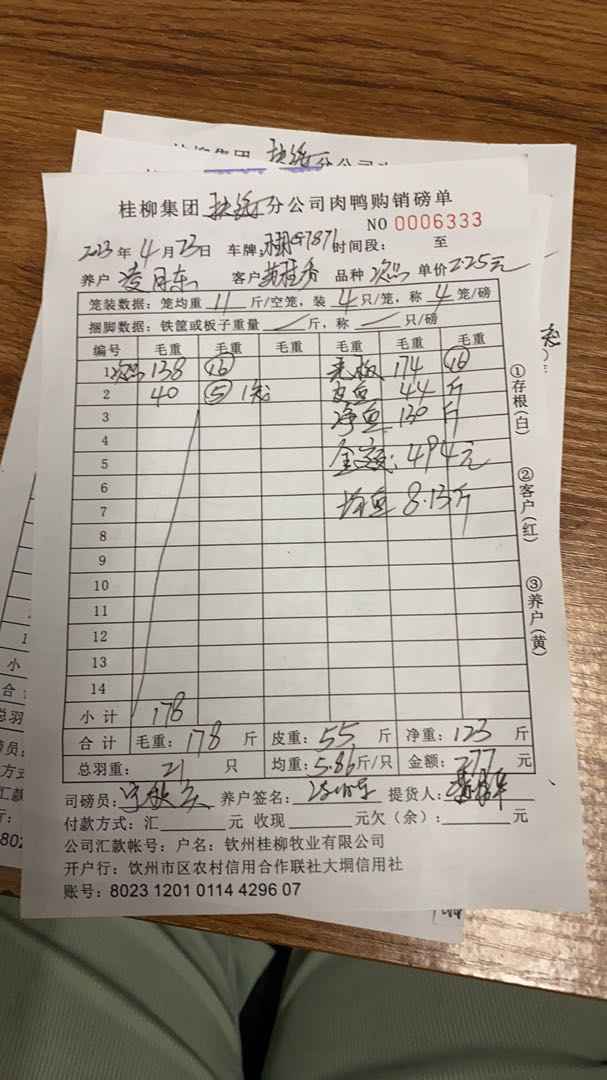 桂柳集团 扶绥 分公司肉鸭购销磅单
NO 0006333
2023年4月23日 车牌: G7871 时间段: 至
养户 凌月东 客户 黄桂秀 品种 次鸟 单价2.25元
笼装数据: 笼均重 11 斤/空笼, 装 4 只/笼, 称 4 笼/磅
捆脚数据: 铁筐或板子重量 斤, 称 只/磅
编号 毛重 毛重 毛重 毛重 毛重 毛重
1 次鸟 138 ⑯ 毛板 174 ⑯
2 40 ⑤ 1笼 皮重 44 斤
3 净重 130 斤
4
5 金额: 494元
6
7 均重 8.13斤
8
9
10
11
12
13
14
小计 178
合计 毛重: 178 斤 皮重: 55 斤 净重: 123 斤
总羽重: 21 只 均重: 5.86斤/只 金额: 277 元
司磅员: 养户签名: 提货人:
付款方式: 汇 元 收现 元欠(余): 元
公司汇款帐号: 户名: 钦州桂柳牧业有限公司
开户行: 钦州市区农村信用合作联社大垌信用社
账号: 8023 1201 0114 4296 07
①存根(白)
②客户(红)
③养户(黄)